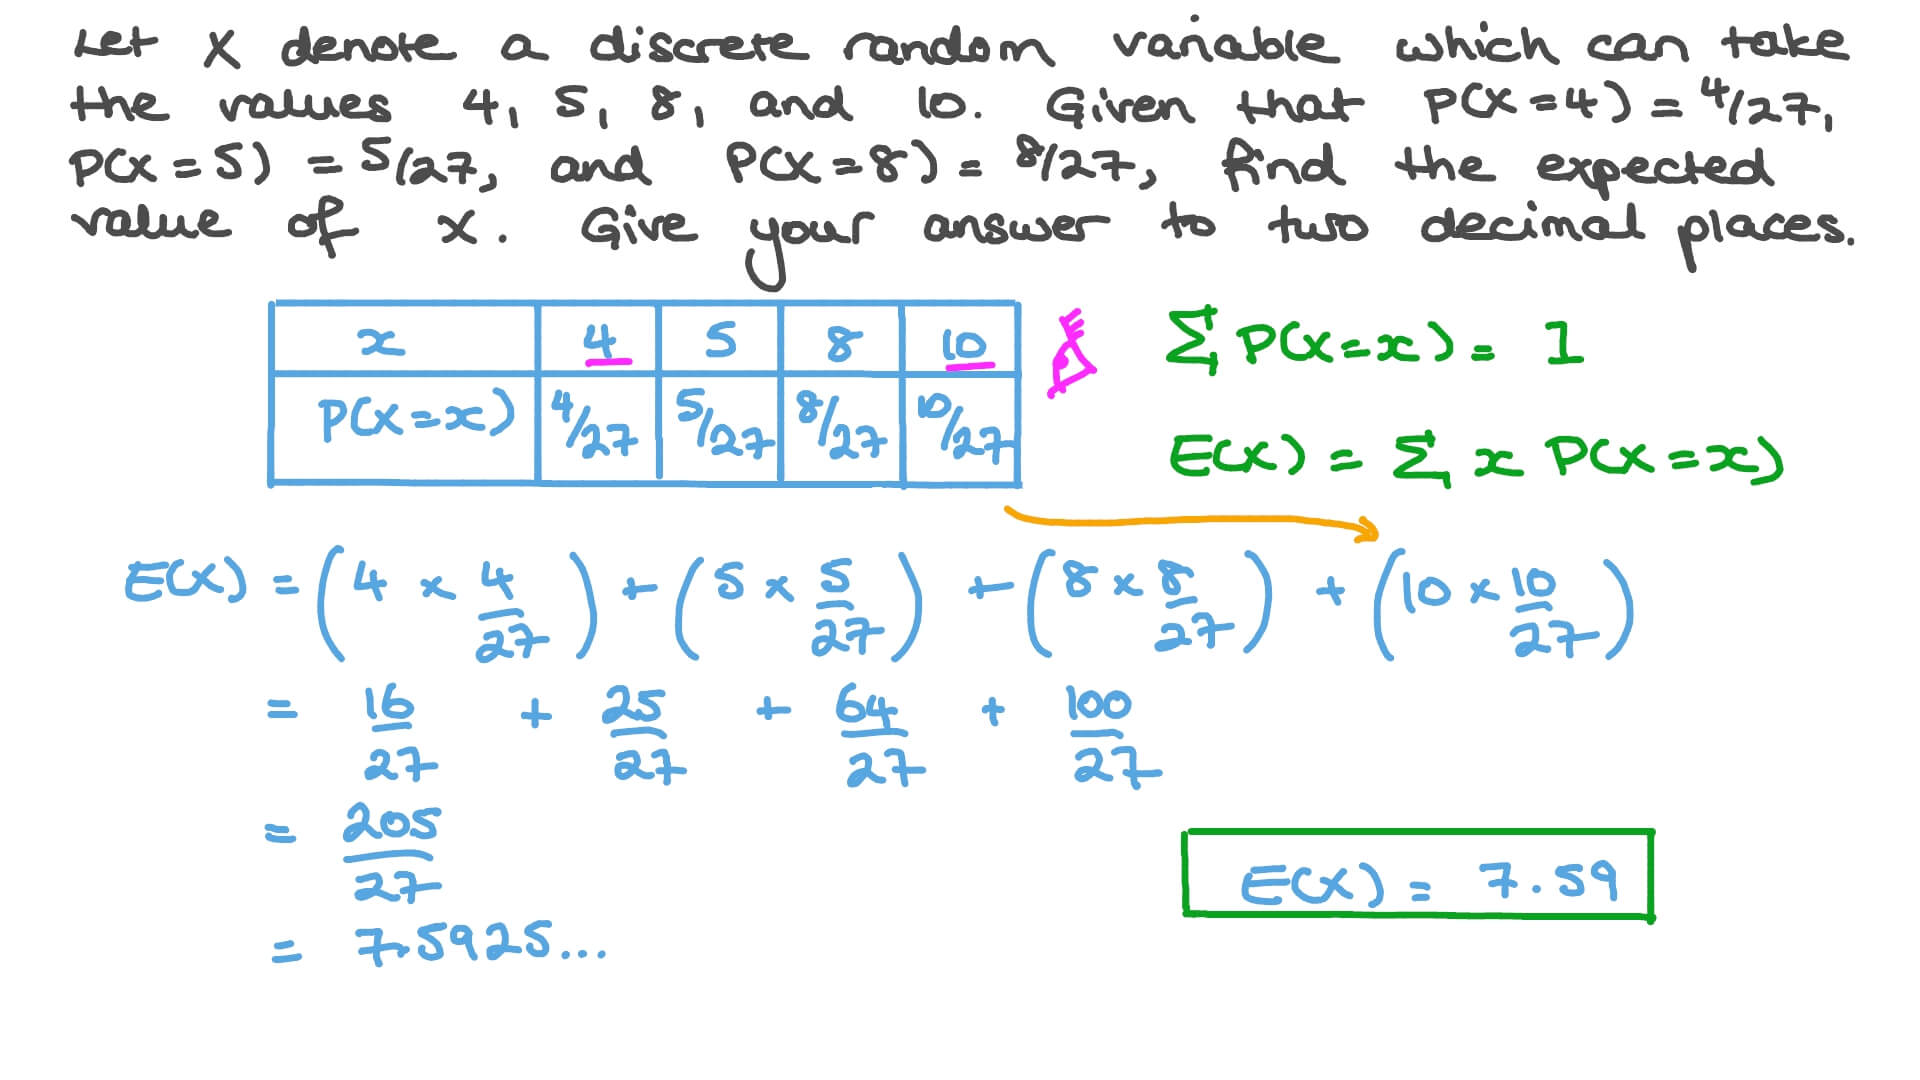 Let X denote a discrete random variable which can take
the values 4, 5, 8, and 10. Given that P(X=4) = 4/27,
P(X=5) = 5/27, and P(X=8) = 8/27, find the expected
value of X. Give your answer to two decimal places.
x 4 5 8 10
P(X=x) 4/27 5/27 8/27 10/27
∑ P(X=x) = 1
E(X) = ∑ x P(X=x)
E(X) = (4 × 4/27) + (5 × 5/27) + (8 × 8/27) + (10 × 10/27)
= 16/27 + 25/27 + 64/27 + 100/27
= 205/27
= 7.5925...
E(X) = 7.59